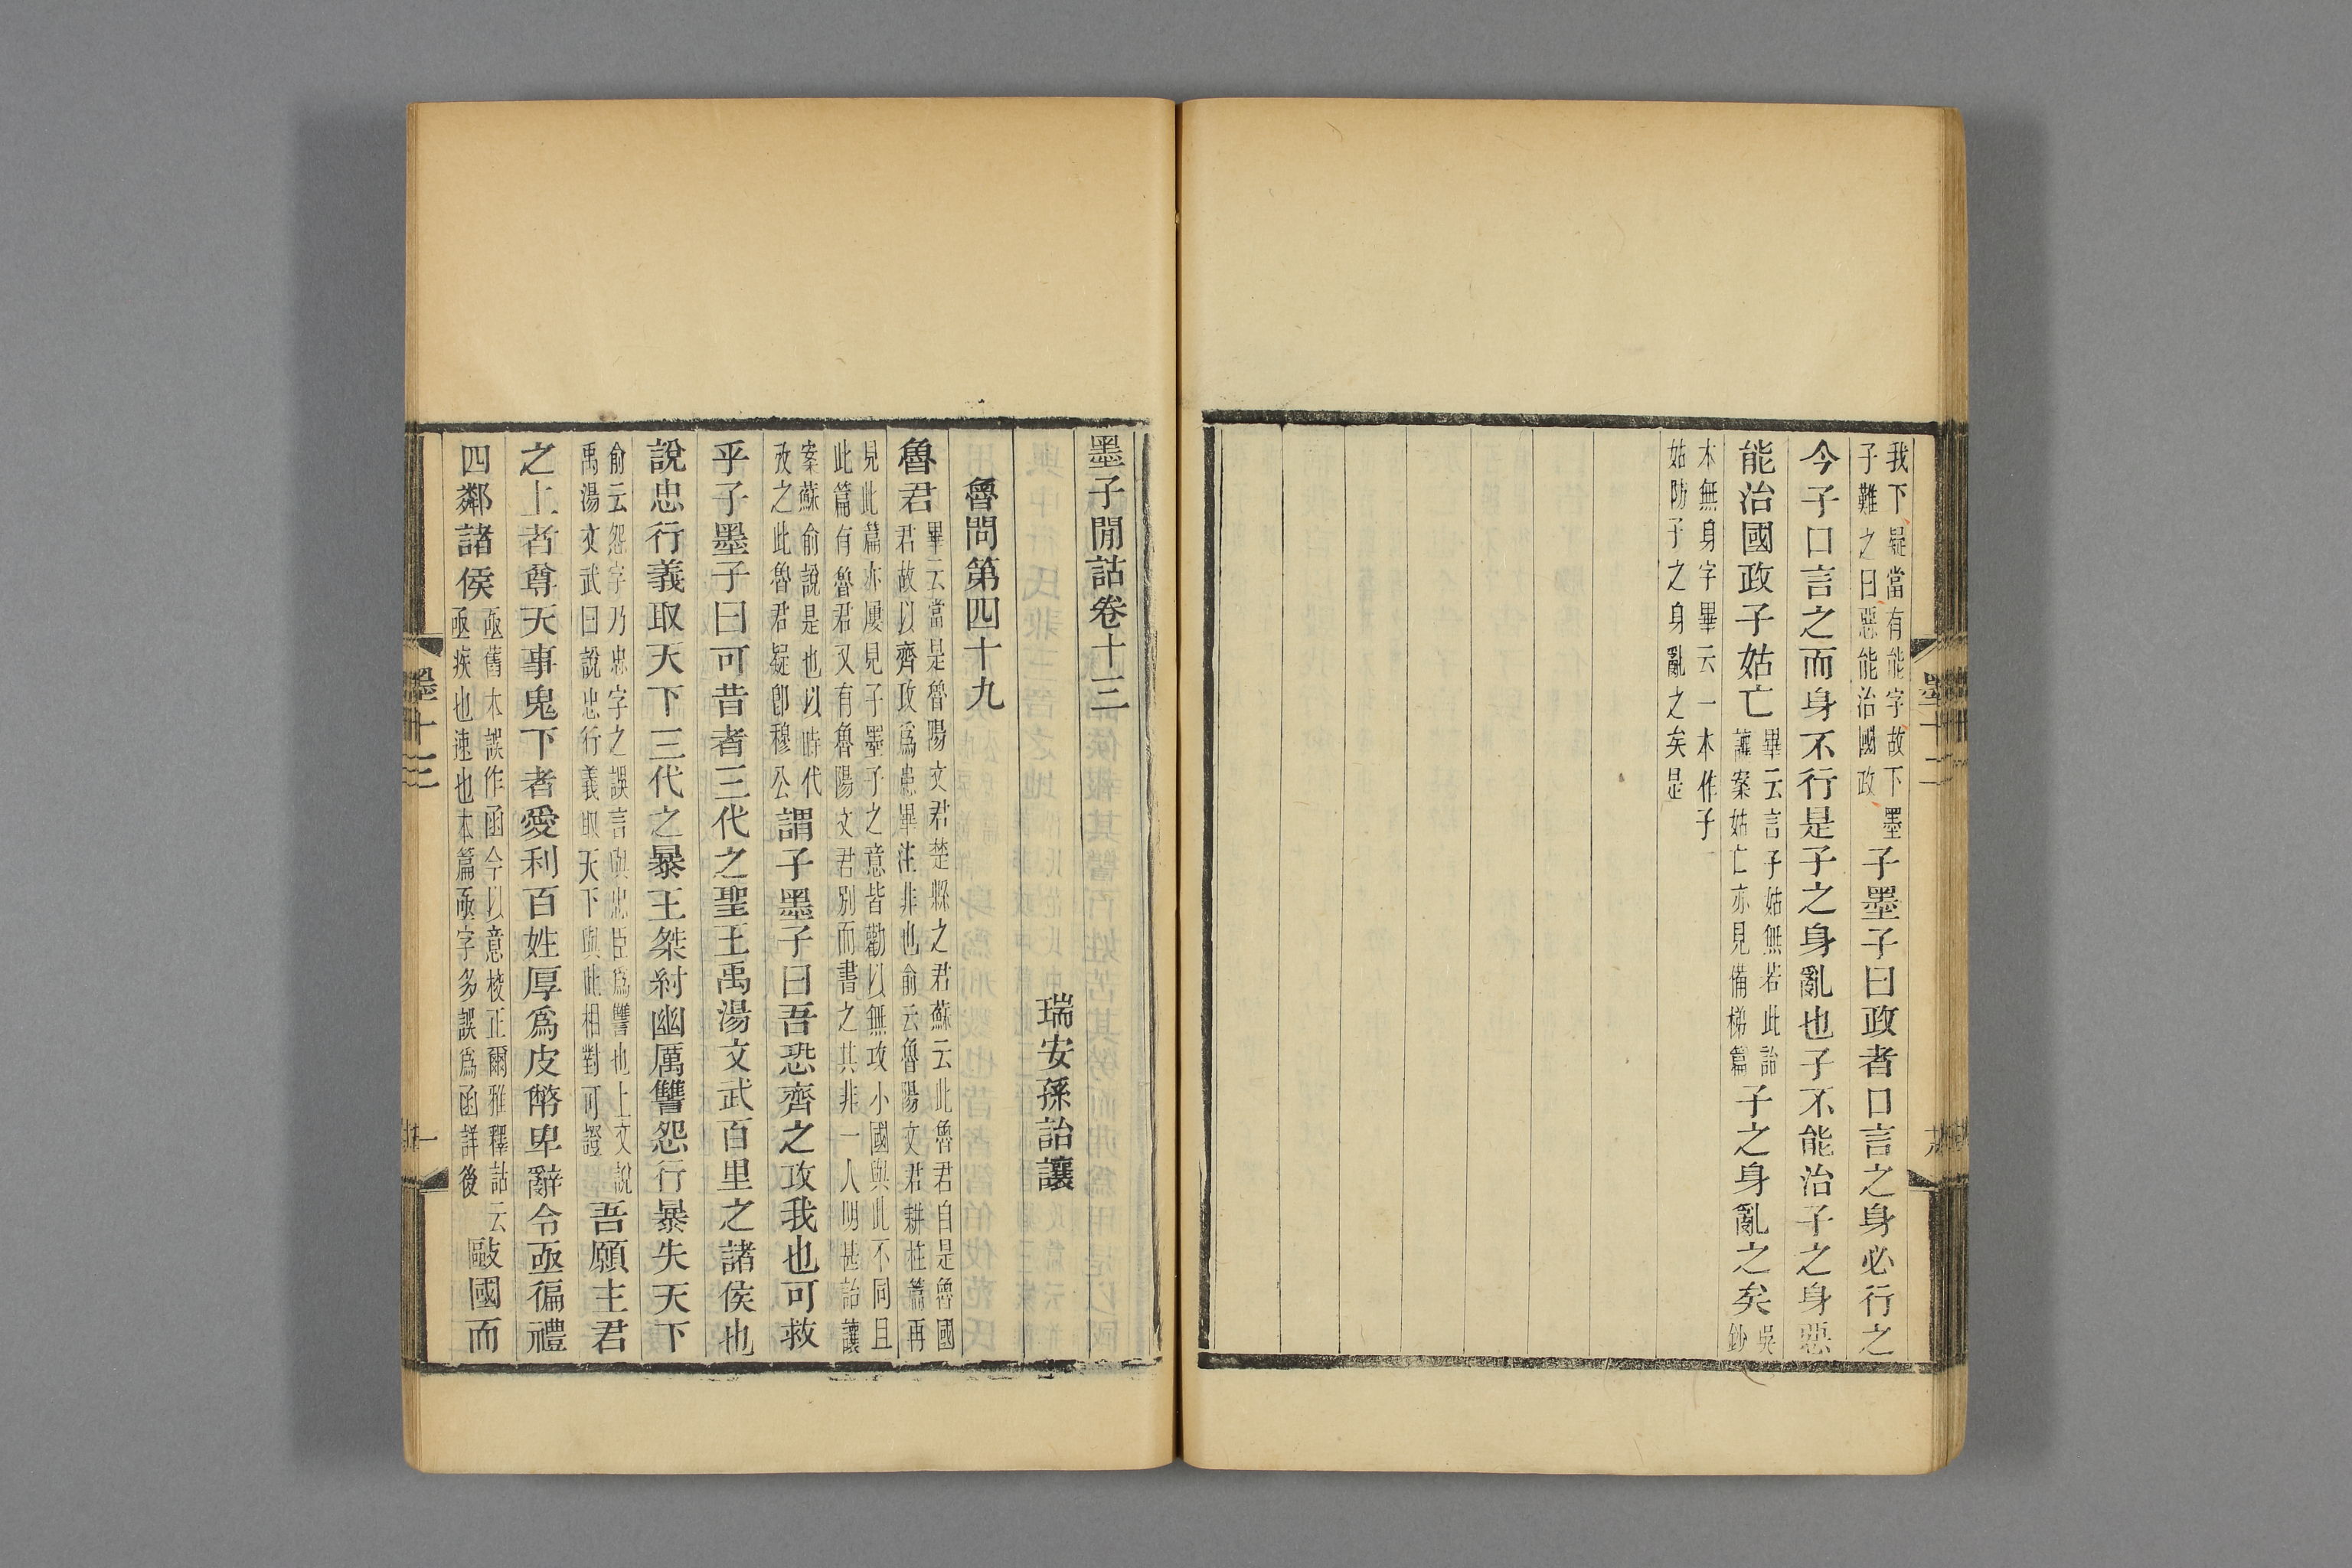 我下疑當有能字故下墨
子難之曰惡能治國政
子墨子曰政者口言之身必行之
今子口言之而身不行是子之身亂也子不能治子之身惡
能治國政子姑亡
畢云言子姑無若此詒
讓案姑亡亦見備梯篇
子之身亂之矣
吳
鈔
本無身字畢云一本作子
姑防子之身亂之矣是
墨十二
墨子閒詁卷十三
瑞安孫詒讓
魯問第四十九
魯君
畢云當是魯陽文君楚縣之君蘇云此魯君自是魯國
君故以齊攻爲患畢注非也俞云魯陽文君耕柱篇再
見此篇亦屢見子墨子之意皆勸以無攻小國與此不同且
此篇有魯君又有魯陽文君別而書之其非一人明甚詒讓
案蘇俞說是也以時代
攷之此魯君疑卽穆公
謂子墨子曰吾恐齊之攻我也可救
乎子墨子曰可昔者三代之聖王禹湯文武百里之諸侯也
說忠行義取天下三代之暴王桀紂幽厲讐怨行暴失天下
俞云怨字乃忠字之誤言與忠臣爲讐也上文說
禹湯文武曰說忠行義取天下與此相對可證
吾願主君
之上者尊天事鬼下者愛利百姓厚爲皮幣卑辭令亟徧禮
四鄰諸侯
亟舊本誤作函今以意校正爾雅釋詁云
亟疾也速也本篇亟字多誤爲函詳後
敺國而
墨十三
一